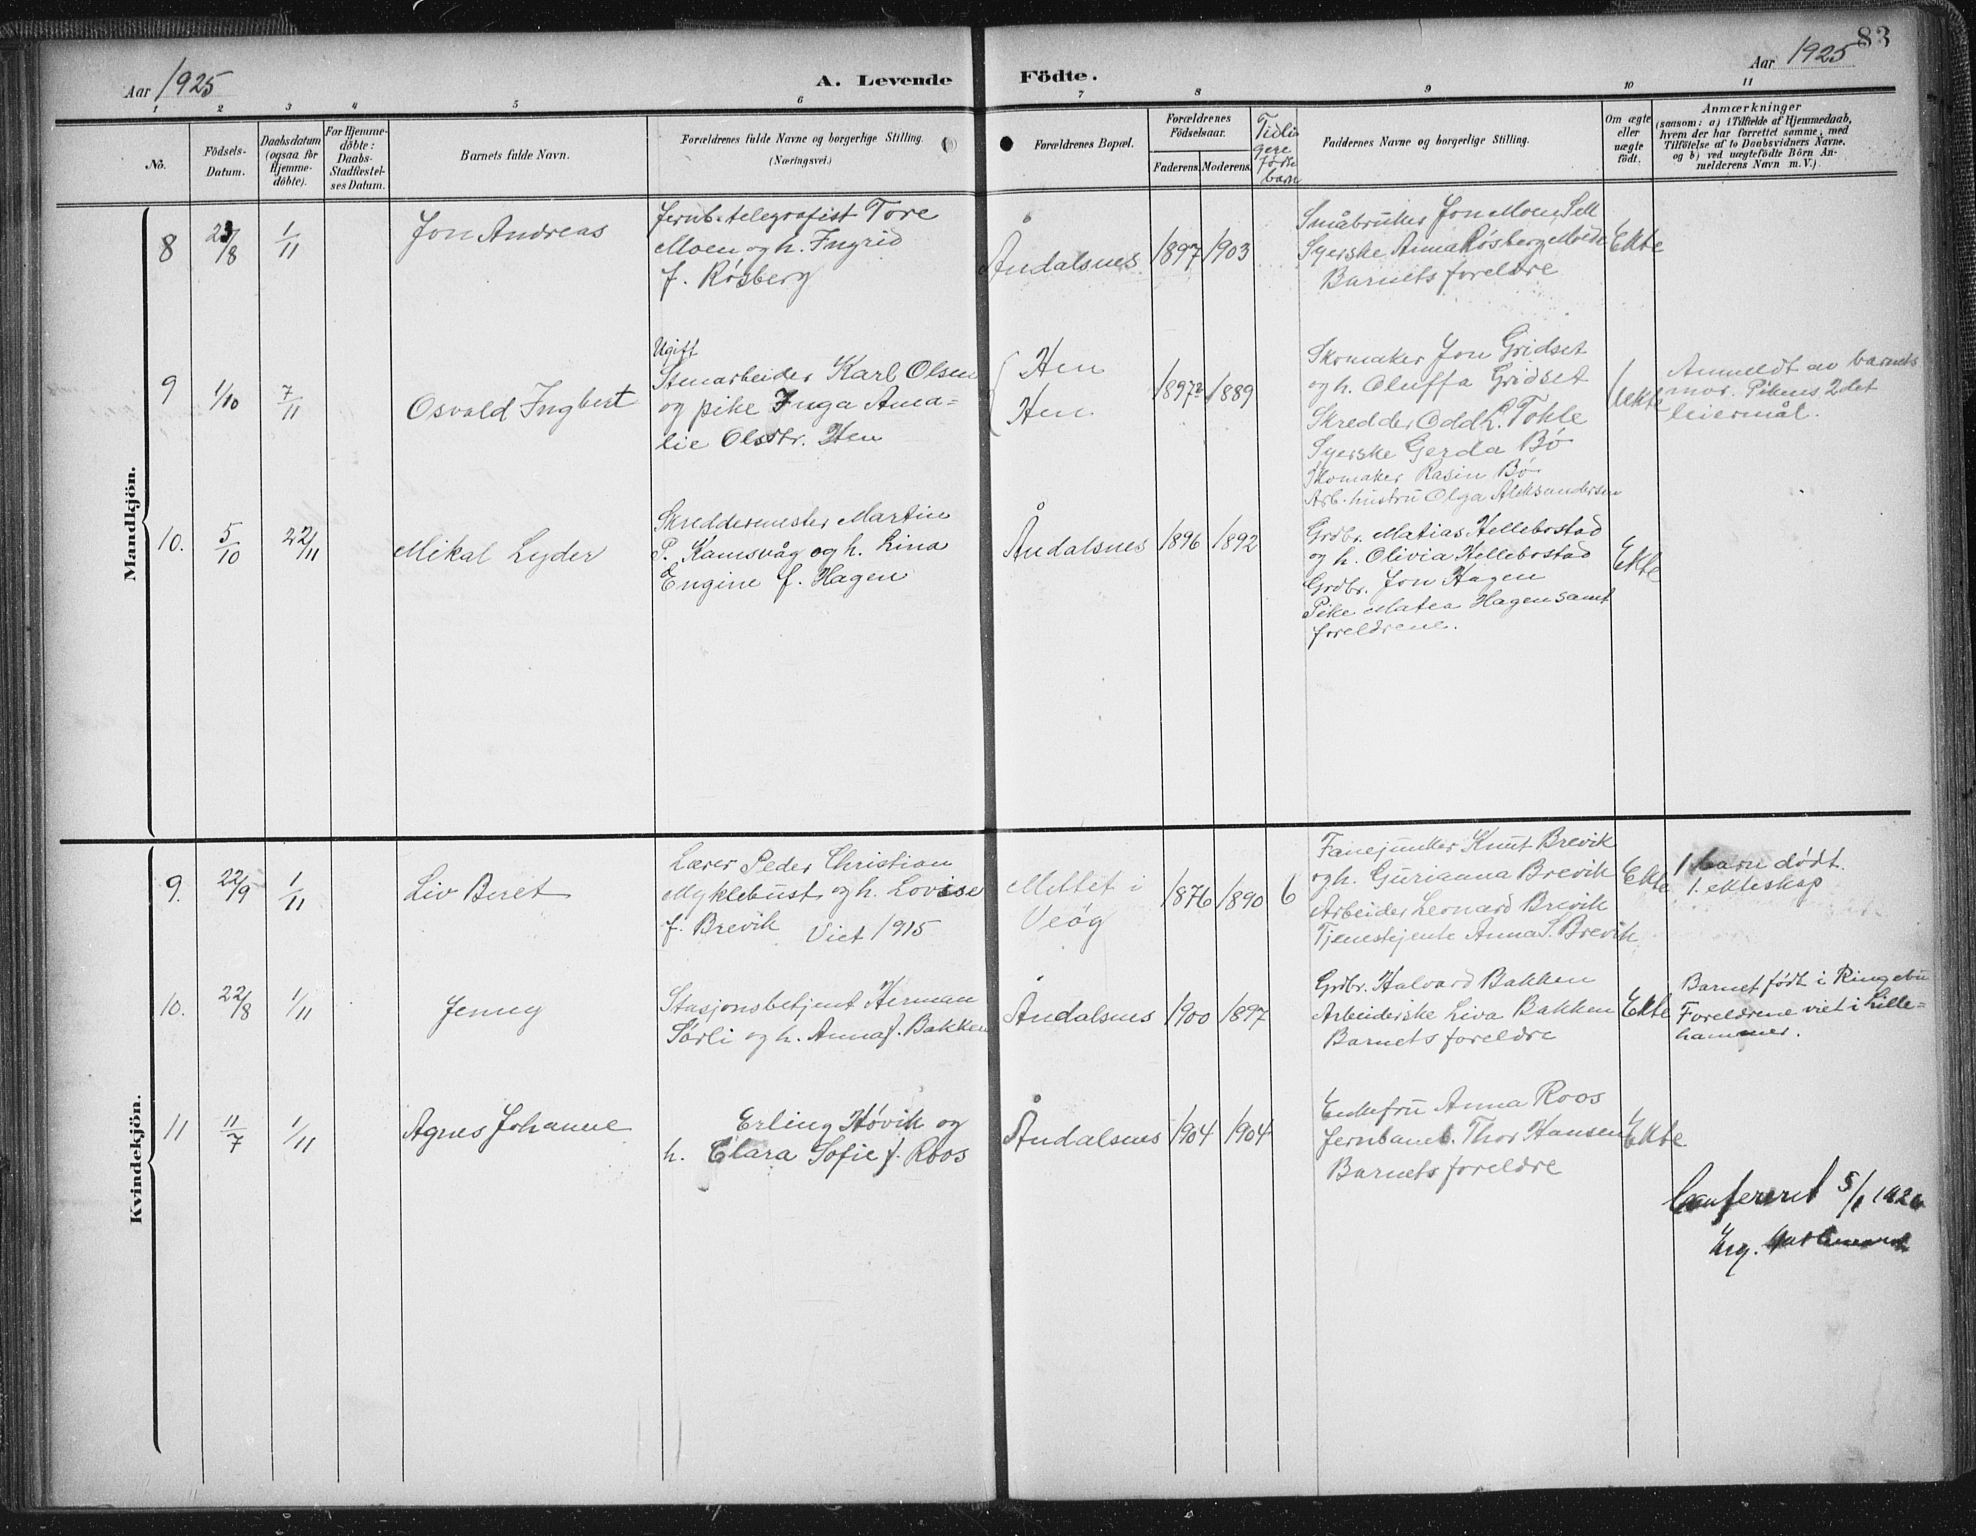 83
Aar 1925
A. Levende
Födte.
Aar 1925
1 2 3 4 5 6 7 8 9 10 11
No.
Födsels-
Datum.
Daabsdatum
(ogsaa for
Hjemme-
döbte).
For Hjemme-
döbte:
Daabs-
Stadfæstel-
ses Datum.
Barnets fulde Navn.
Forældrenes fulde Navne og borgerlige Stilling.
(Næringsvei.)
Forældrenes Bopæl.
Forældrenes
Födselsaar.
Faderens.
Moderens.
Tidli
gere
fødte
barn
Faddernes Navne og borgerlige Stilling.
Om ægte
eller
uægte
födt.
Anmærkninger
(saasom: a) i Tilfælde af Hjemmedaab,
hvem der har forrettet samme, med
Tilföielse af to Daabsvidners Navne,
og b) ved uægtefödte Börn An-
melderens Navn m. V.)
Mandkjön.
8
23/8
1/11
Jon Andreas
Jernb.telegrafist Tore
Moen og h. Ingrid
f. Røsberg
Åndalsnes
1897
1903
Småbruker Jon Moen Sell
Syerske Anna Røsberg Molde
Barnets foreldre
Ekte
9
1/10
7/11
Osvald Ingbert
Ugift
Stenarbeider Karl Olsen
og pike Inga Ama-
lie Olsdtr. Hen
Hen
Hen
1897
1889
Skomaker Jon Gridset
og h. Oluffa Gridset
Skredder Odd L. Tokle
Syerske Gerda Bø
Skomaker Rasin Bø
Arb. hustru Olga Aleksandersen
Uekte
Anmeldt av barnets
mor. Pikens 2det
leiermål.
10.
5/10
22/11
Mikal Lyder
Skreddermester Martin
P. Kamsvåg og h. Lina
Engine f. Hagen
Åndalsnes
1896
1892
Grdbr. Matias Hellebostad
og h. Olivia Hellebostad
Grdbr. Jon Hagen
Pike Matea Hagen samt
foreldrene.
Ekte
Kvindekjön.
9.
22/9
1/11
Liv Beret
Lærer Peder Christian
Myklebust og h. Lovise
f. Brevik Viet 1915
Mittet i
Veøy
1876
1890
6
Fanejunker Knut Brevik
og h. Gurianna Brevik
Arbeider Leonard Brevik
Tjenestejente Anna S. Brevik
Ekte
1 barn dødt.
1. ekteskap
10.
22/8
1/11
Jenny
Stasjonsbetjent Herman
Sørli og h. Anna f. Bakken
Åndalsnes
1900
1897
Grdbr. Halvard Bakken
Arbeiderske Liva Bakken
Barnets foreldre
Ekte
Barnet født i Ringebu
Foreldrene viet i Lille-
hammer.
11
11/7
1/11
Agnes Johanne
Erling Høvik og
h. Clara Sofie f. Roos
Åndalsnes
1904
1904
Enkefru Anna Roos
Jernbaneb. Thor Hansen
Barnets foreldre
Ekte
Confereret 5/1 1926